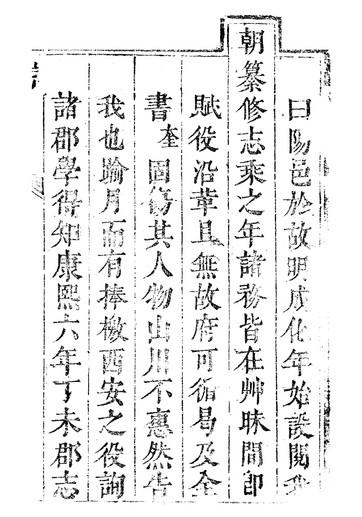 曰陽邑於故明成化年始設閱我
朝纂修志乘之年諸務皆在艸昧間卽
賦役沿革且無故府可循曷及全
書奎固傷其人物山川不惠然告
我也踰月而有捧檄西安之役詢
諸郡學得知康熙六年丁未郡志